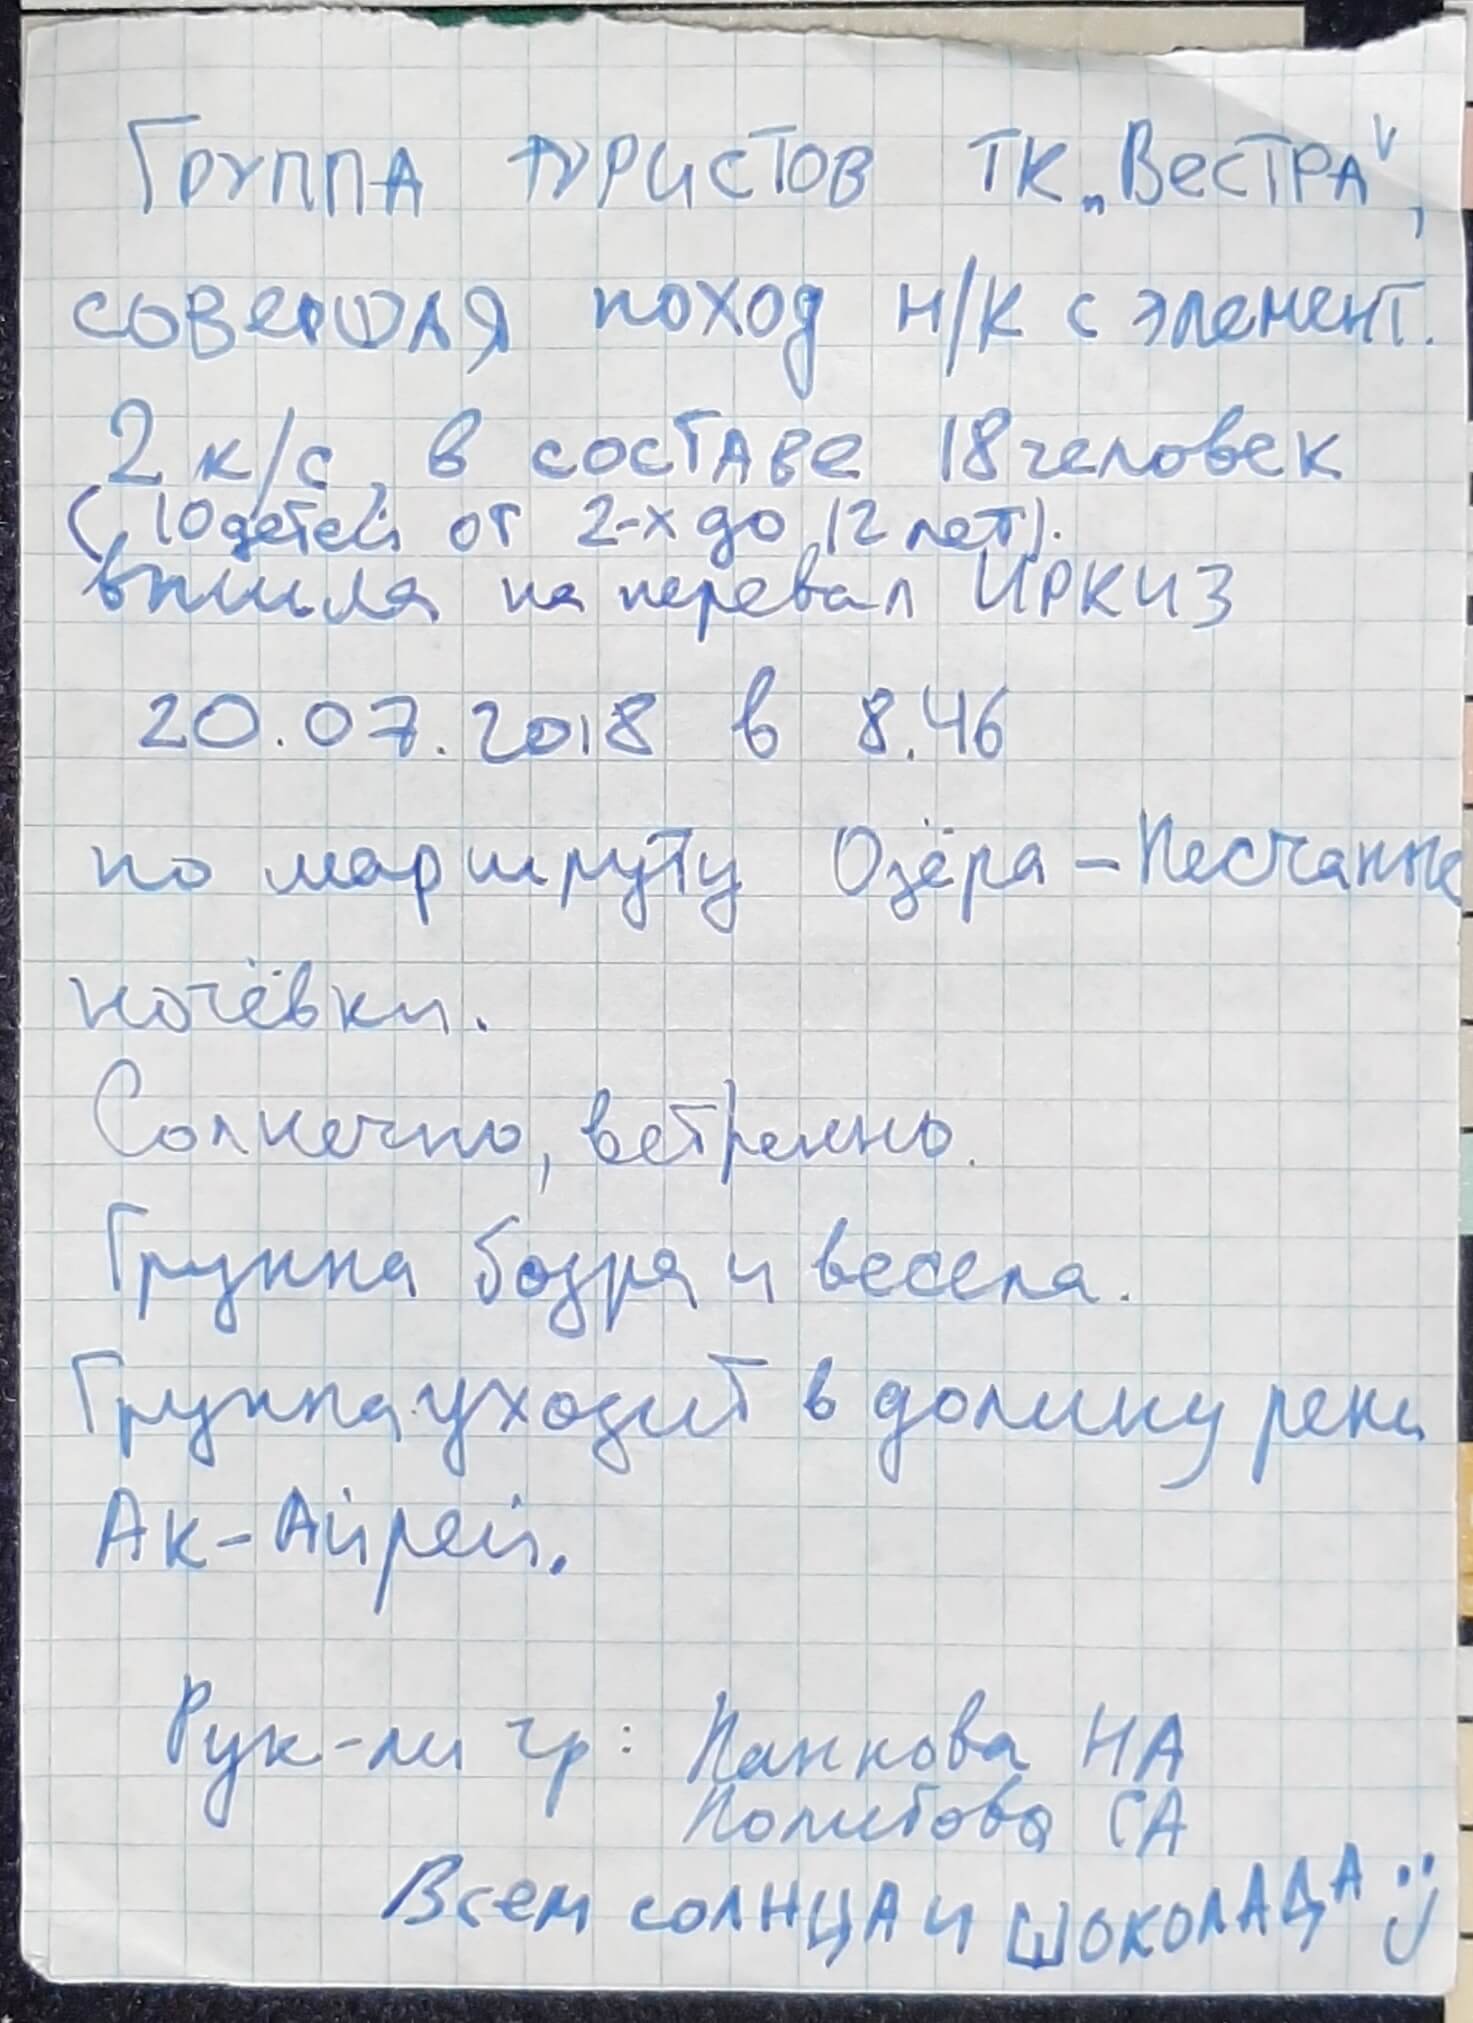 Группа туристов ТК „Вестра",
соверш��я поход н/к с элемент.
2 к/с, в составе 18 человек
(10 детей от 2-х до 12 лет).
вышла на перевал ИРКИЗ
20.07.2018 в 8.46
по маршруту Озёра - Песчаные
ночёвки.
Солнечно, ветренно.
Группа бодра и весела.
Группа уходит в долину реки
Ак-Айрей.
Рук-ли гр: Панкова НА
Политова СА
Всем солнца и шоколада :)